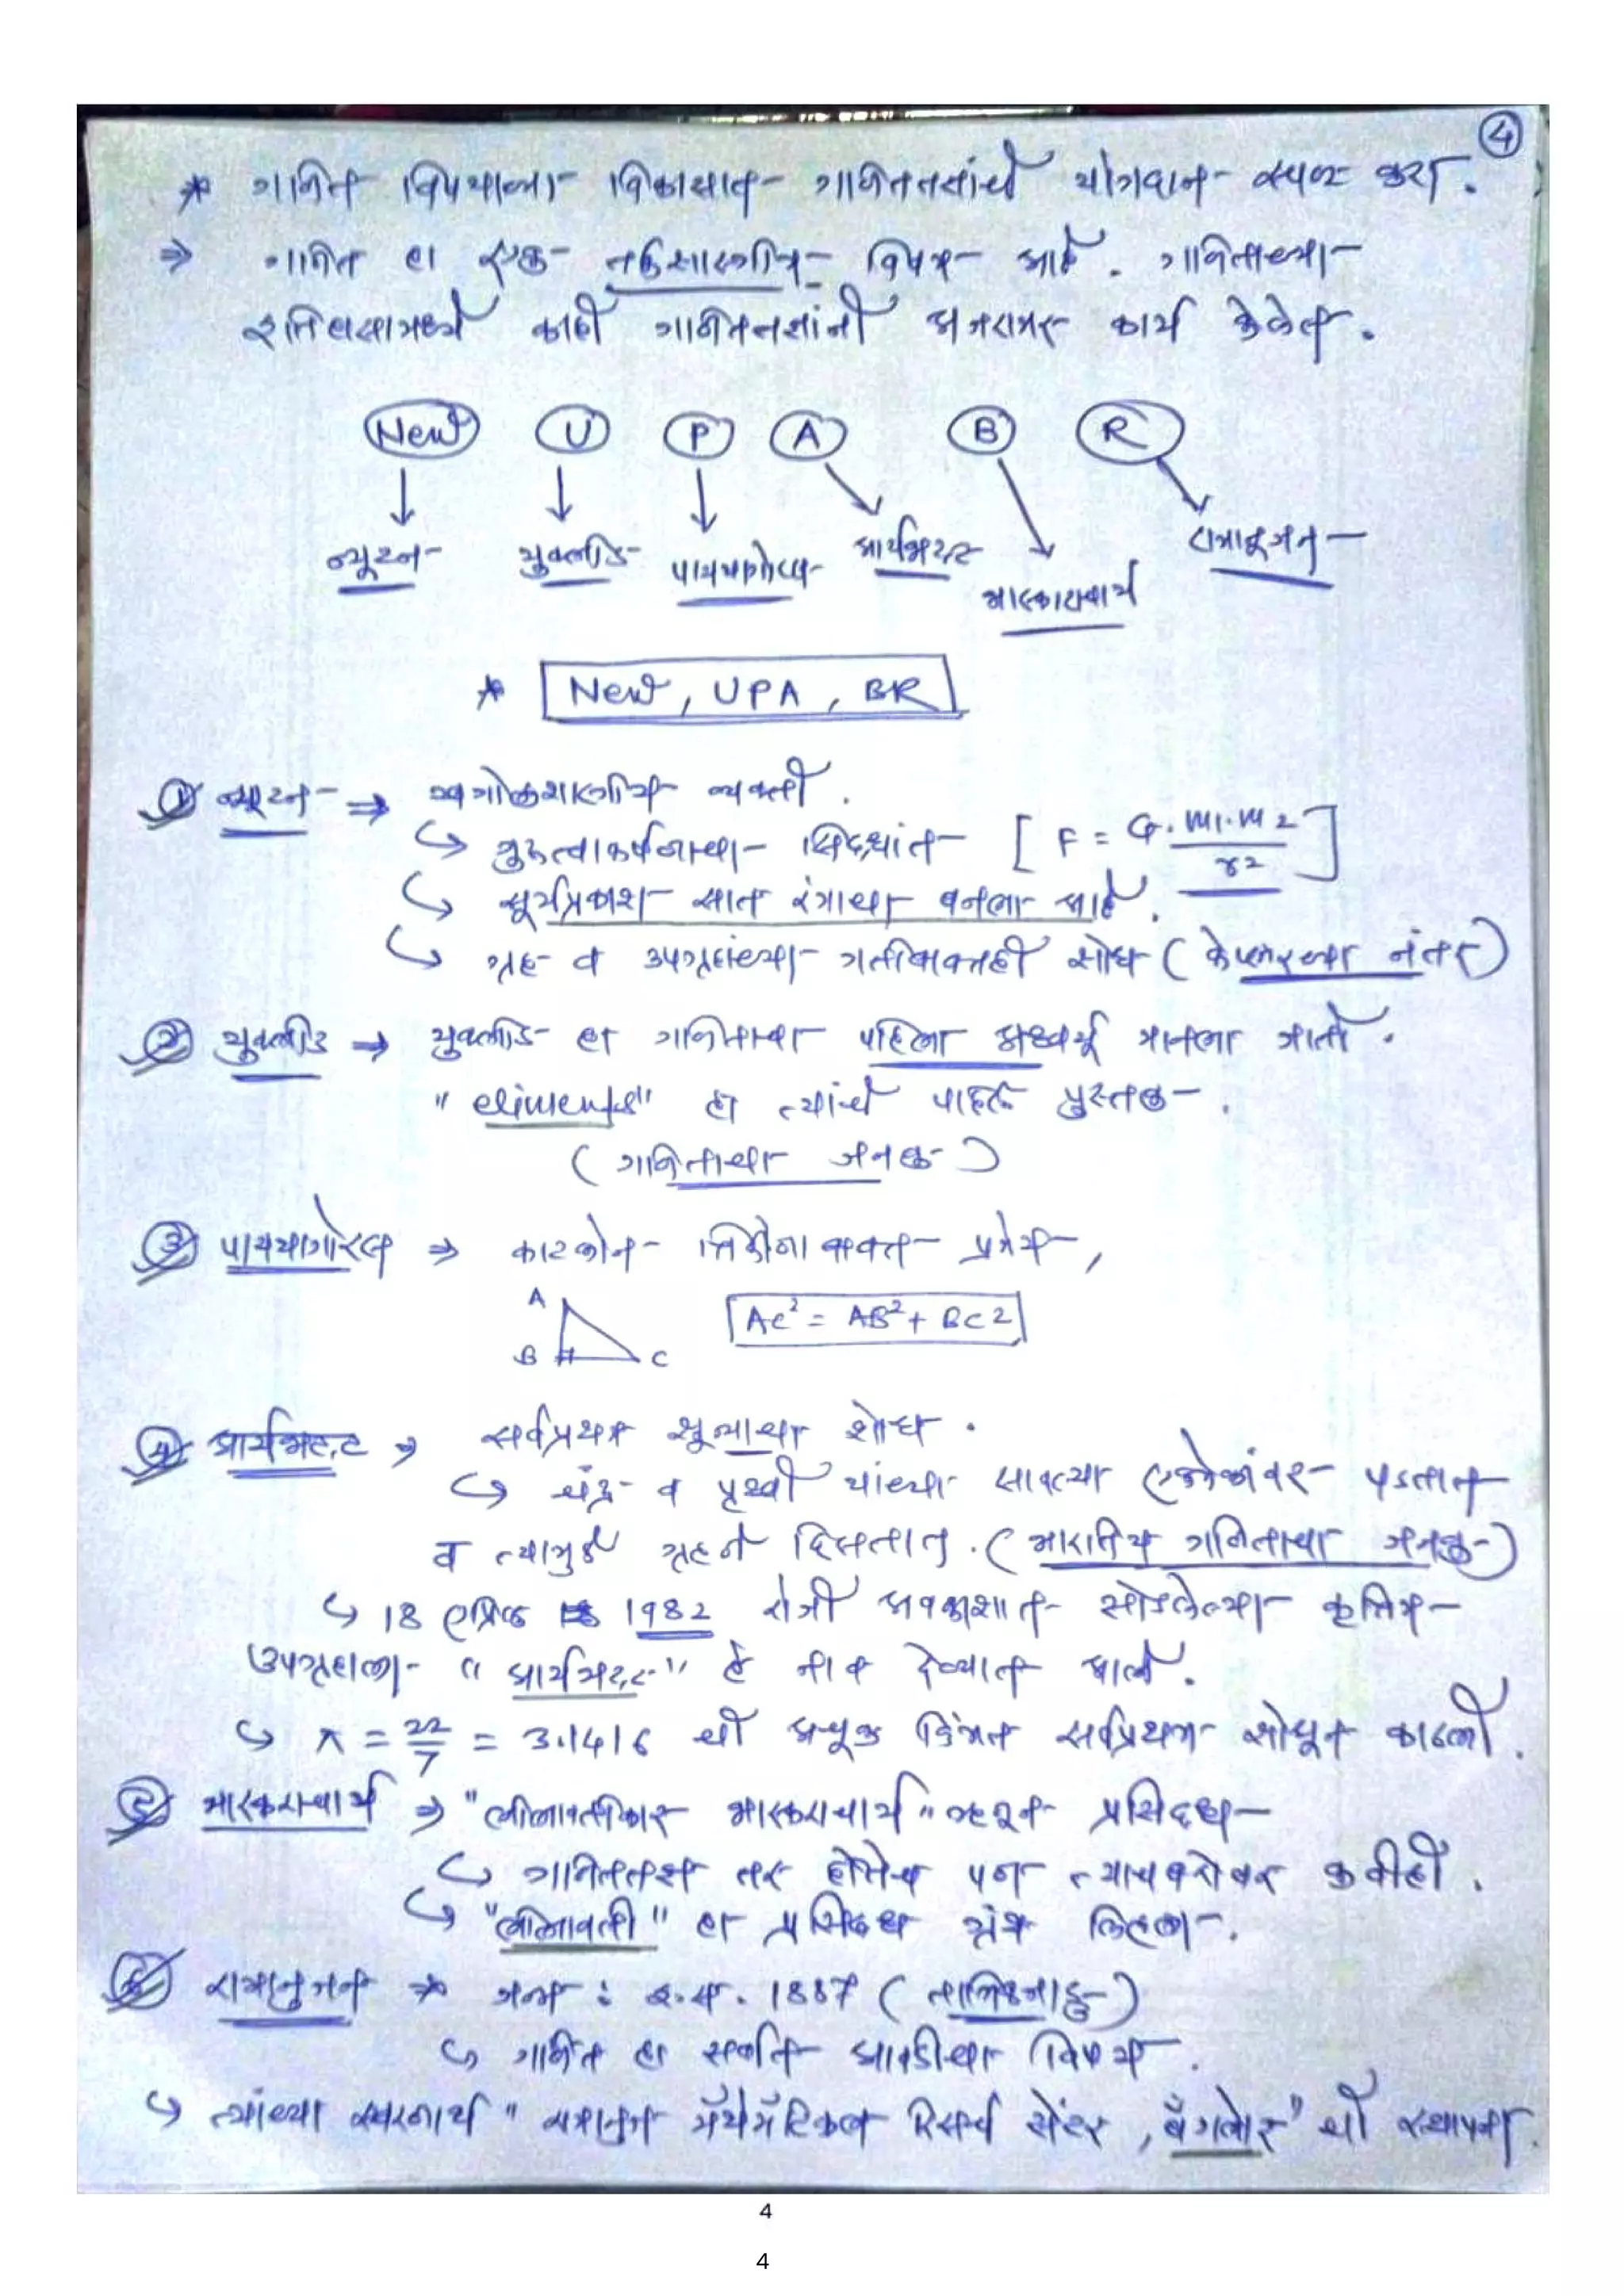 4
* गणित विषयाच्या विकासात गणिततज्ञांचे योगदान स्पष्ट करा.
⇒ गणित हा एक तर्कशास्त्रीय विषय आहे. गणिताच्या
इतिहासामध्ये काही गणिततज्ञांनी अजरामर कार्य केलेत.
New U P A B R
न्यूटन युक्लीड पायथागोरस आर्यभट्ट भास्कराचार्य रामानुजन
* New, UPA, BR
① न्यूटन ⇒ खगोलशास्त्रीय व्यक्ती.
↪ गुरुत्वाकर्षणाचा सिद्धांत [ F = G. m1.m2 / r2 ]
↪ सूर्यप्रकाश सात रंगाचा बनला आहे.
↪ ग्रह व उपग्रहांच्या गतीबाबतही शोध (केप्लरच्या नंतर)
② युक्लीड ⇒ युक्लीड हा गणिताचा पहिला अध्वर्यू मानला जातो.
"eliments" हा त्यांचे पुस्तक.
(गणिताचा जनक)
③ पायथागोरस ⇒ काटकोन त्रिकोणाबाबत प्रमेय,
A B C AC² = AB² + BC2
④ आर्यभट्ट → सर्वप्रथम शून्याचा शोध.
↪ चंद्र व पृथ्वी यांच्या सावल्या एकमेकांवर पडतात
व त्यामुळे ग्रहने दिसतात. (भारतिय गणिताचा जनक)
↪ 18 एप्रिल 1982 रोजी अवकाशात सोडलेल्या कृत्रिम
उपग्रहाला "आर्यभट्ट" हे नाव देण्यात आले.
↪ π = 22/7 = 3.1416 ची अचूक किंमत सर्वप्रथम शोधून काढली.
⑤ भास्कराचार्य ⇒ "लीलावतीकार भास्कराचार्य" म्हणून प्रसिद्ध
↪ गणिततज्ञ तर होतेच पण त्याचबरोबर कवीही.
↪ "लीलावती" हा प्रसिद्ध ग्रंथ लिहला.
⑥ रामानुजन → जन्म : इ.स. 1887 (तामिळनाडू)
↪ गणित हा सर्वात आवडीचा विषय.
↪ त्यांच्या स्मरणार्थ "रामानुज मॅथेमॅटिकल रिसर्च सेंटर, बँगलोर" ची स्थापना.
4
4